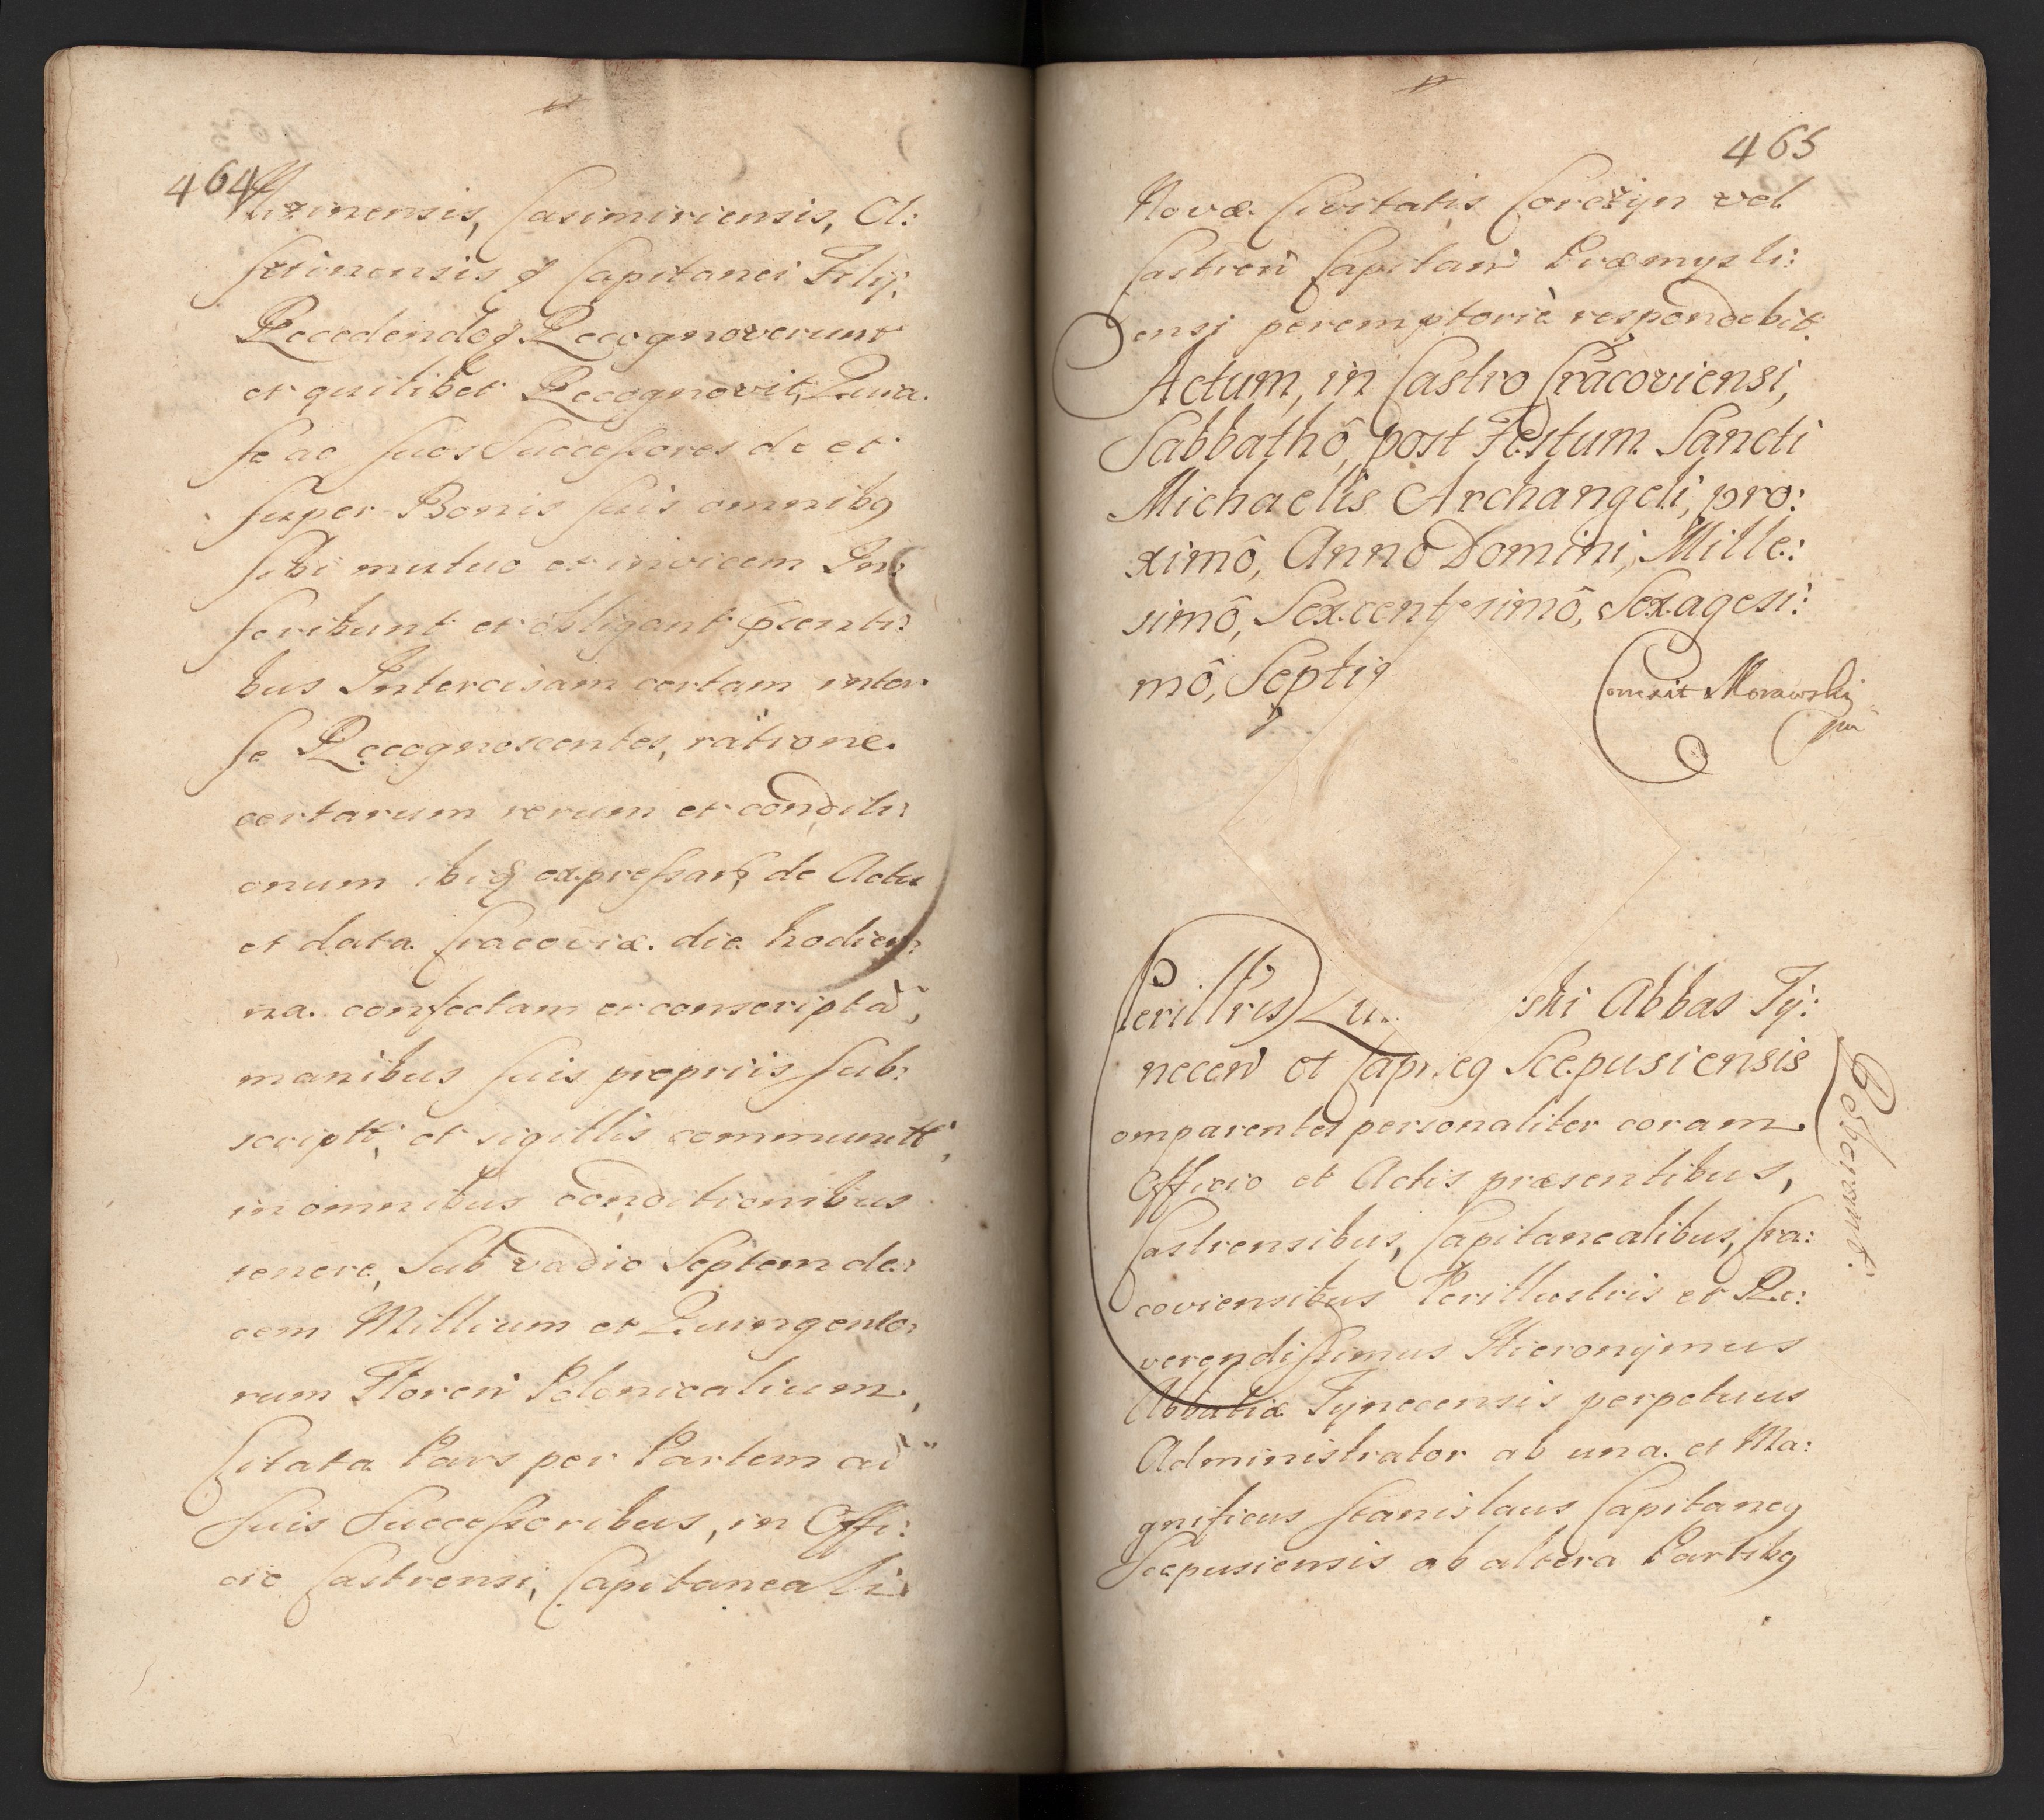 464
Nizinensis, Casimiriensis, Ol:
sztinensis q Capitanei Filij.
Recedendoq Recognoverunt
et quilibet Recognovit, Quia.
se ac suos Successores de et
super Bonis suis omnibq
sibi mutuo et invicem In:
scribunt et obligant pscenti:
bus Intercisam certam inter
se Recognoscentes, ratione.
certarum rerum et conditi:
onum ibiq expressarq de Actu
et data Cracoviæ. die hodier:
na. confectam et conscriptã,
manibus suis propriis sub:
scriptt, et sigillis communitt,
in omnibus conditionibus
tenere, Sub vadio Septemde:
cem Millium et Quingento:
rum Floren Polonicalium,
Citata Pars per Partem ac
suis Successoribus, in Offi:
cio Castrensi, Capitaneali
465
Novæ. Civitatis Corczyn vel
Castren Capitan Præmysli:
ensi peremptoriè respondebit.
Actum, in Castro Cracoviensi,
Sabbathô, post Festum. Sancti
Michaelis Archangeli, pro:
ximô, Annô Domini, Mille:
simô, Sexcentesimô, Sexagesi:
mô, Septi
Conexit Morawski
mp
Perilltris Lu.. ski Abbas Ty:
necen et Capi.eq Scepusiensis
omparentes personaliter coram
Officio et Actis præsentibus,
Castrensibus, Capitanealibus, Cra:
coviensibus Perillustris et Re:
verendissimus Hieronymus
Abbatiæ Tynecensis perpetuus
Administrator ab una. et Ma:
gnificus Stanislaus Capitaneq
Scepusiensis ab altera Partibq
Roborant.